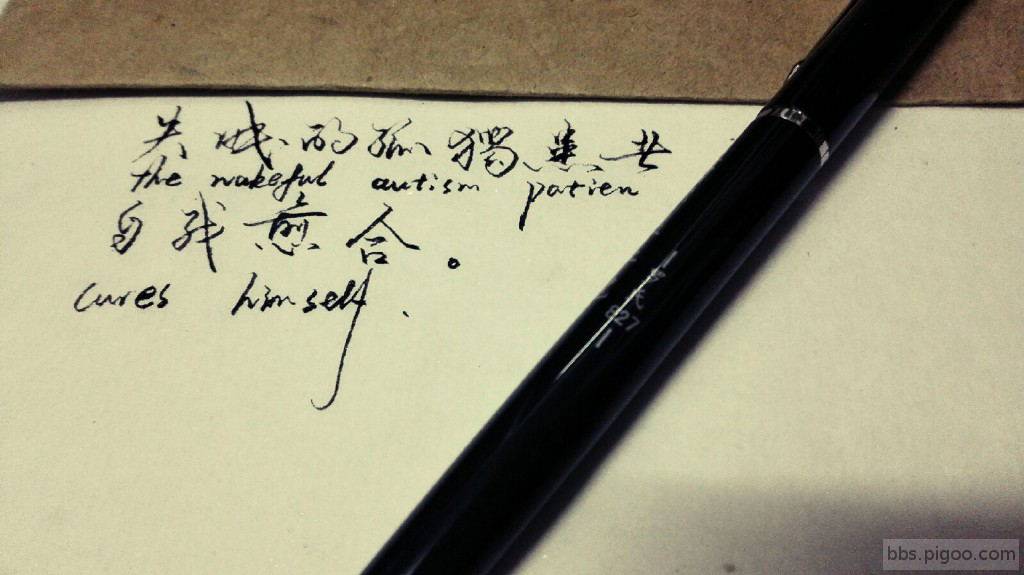 失眠的孤獨患者
the wakeful autism patien
自我愈合。
cures himself.
627
bbs.pigoo.com